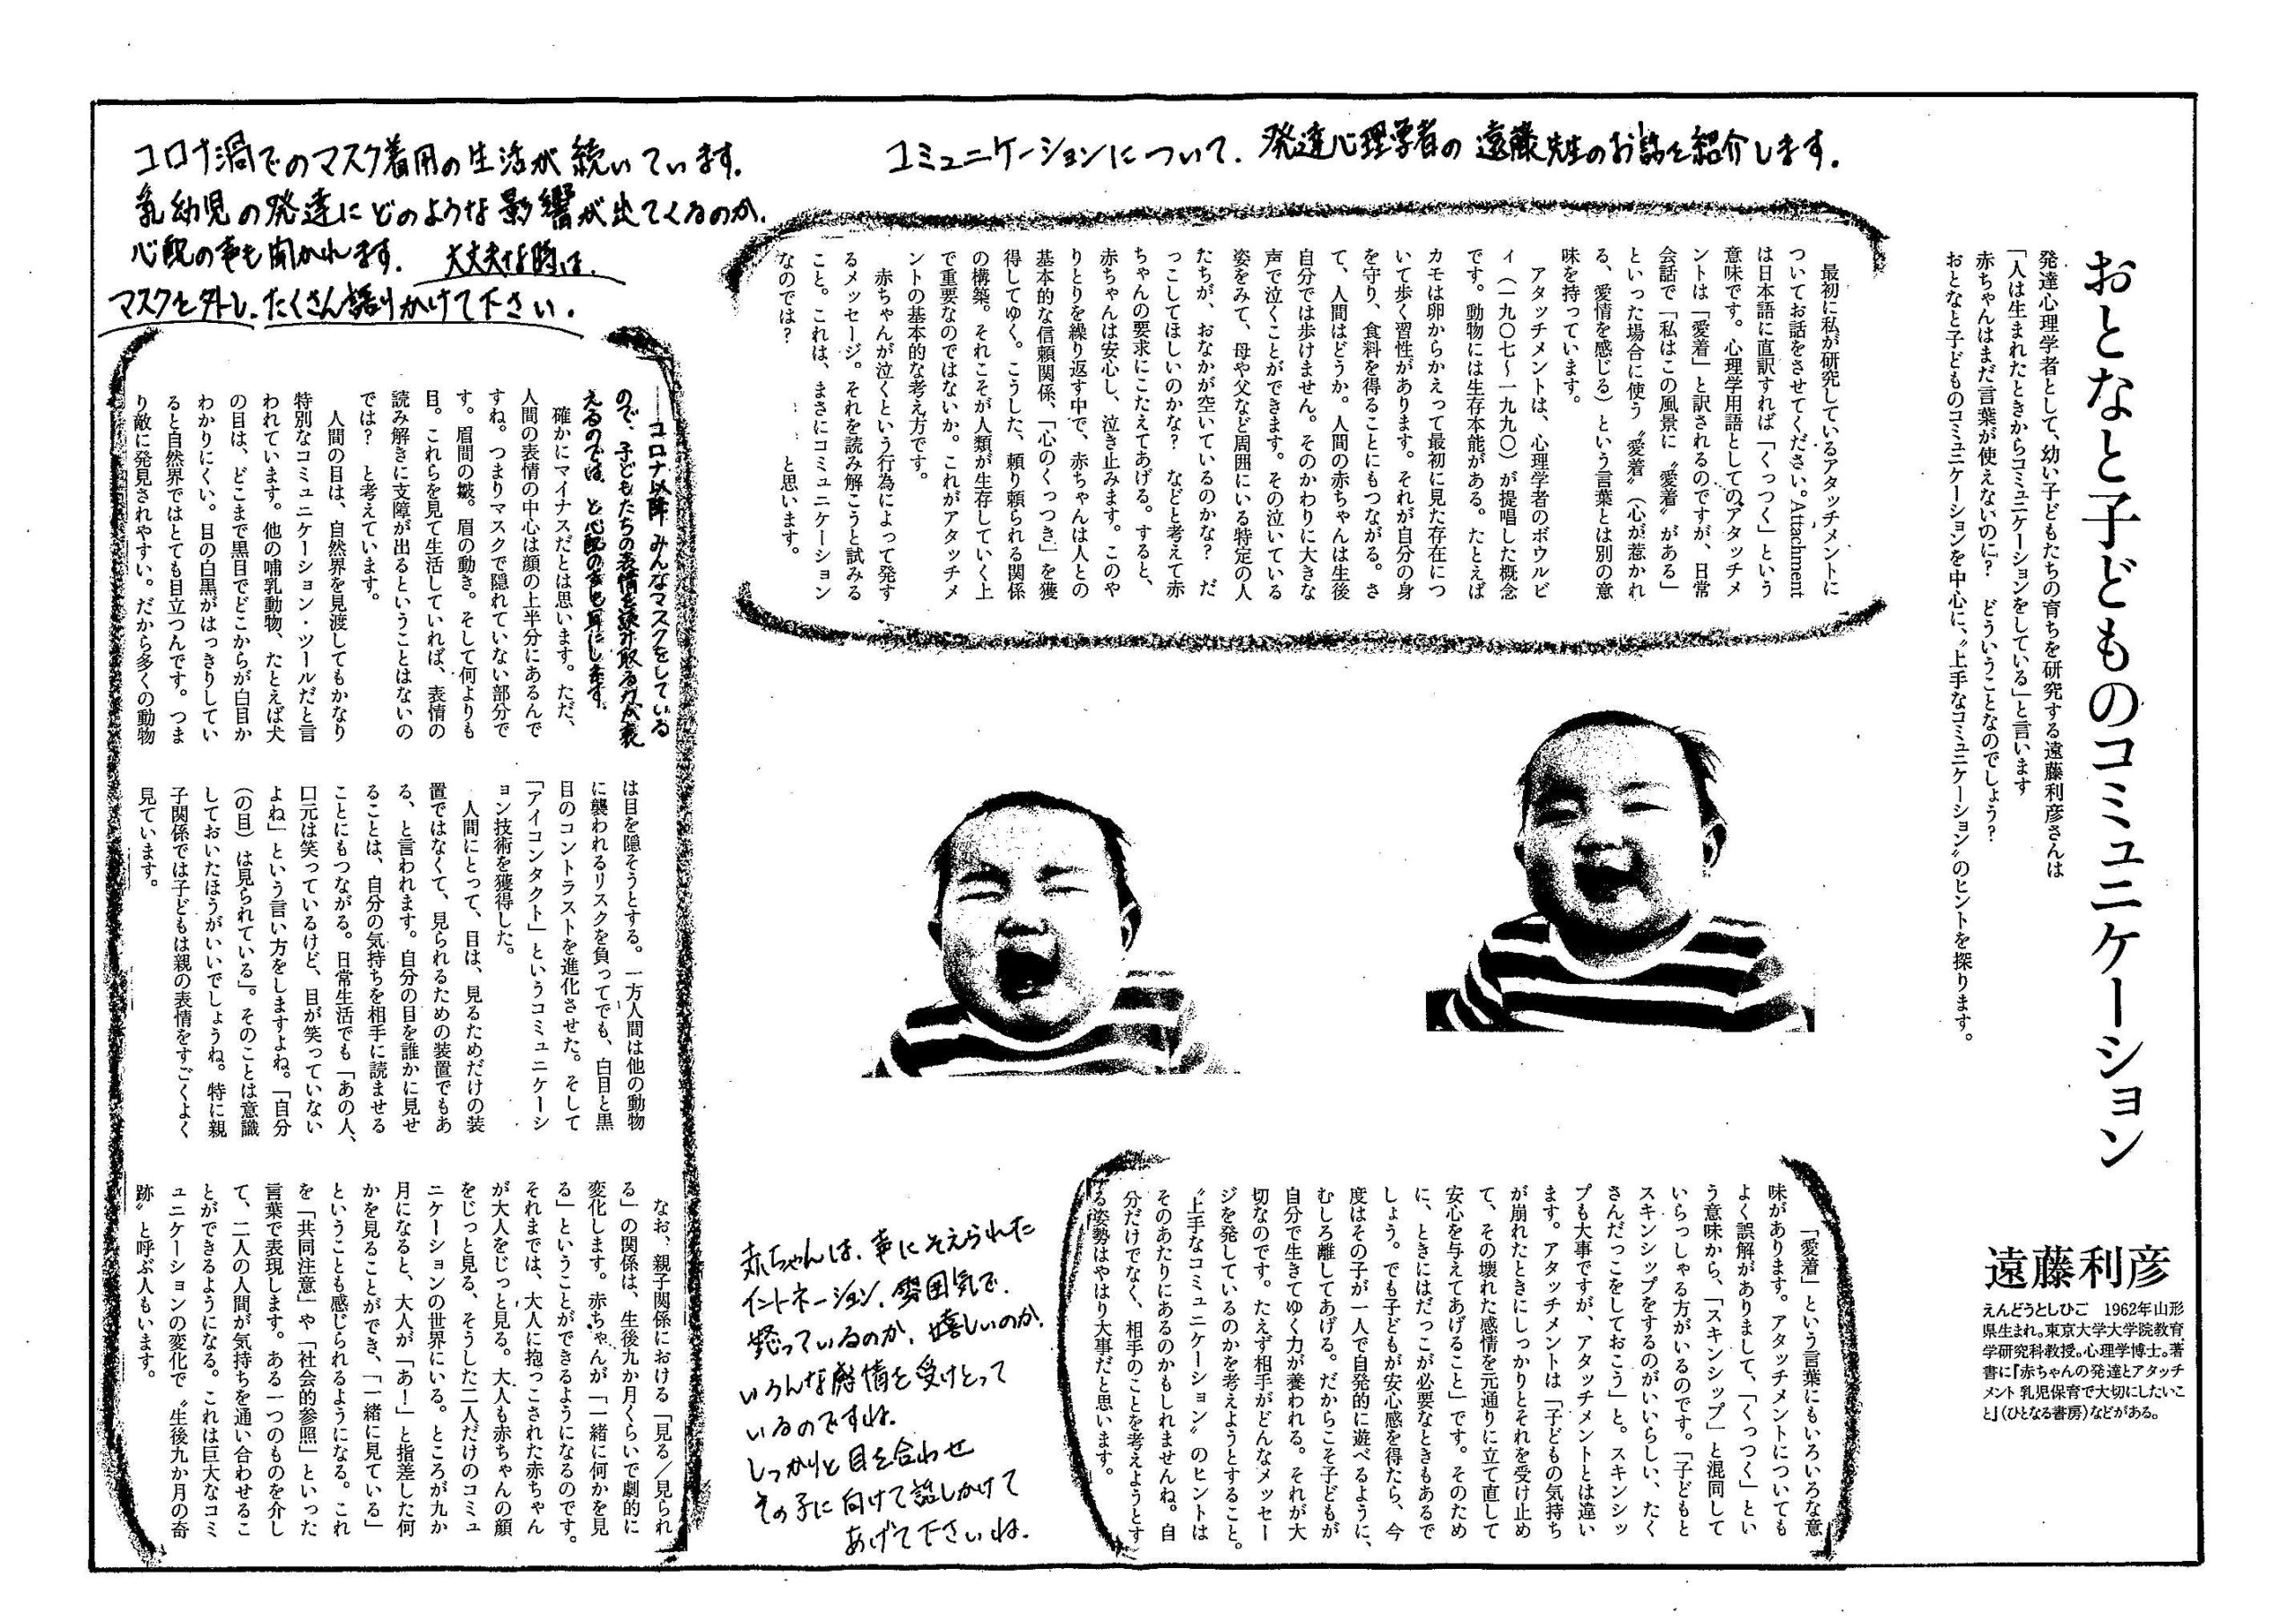 コミュニケーションについて、発達心理学者の遠藤先生のお話を紹介します。
おとなと子どものコミュニケーション
発達心理学者として、幼い子どもたちの育ちを研究する遠藤利彦さんは
「人は生まれたときからコミュニケーションをしている」と言います
赤ちゃんはまだ言葉が使えないのに？　どういうことなのでしょう？
おとなと子どものコミュニケーションを中心に、〝上手なコミュニケーション〟のヒントを探ります。
遠藤利彦
えんどうとしひこ　1962年山形
県生まれ。東京大学大学院教育
学研究科教授。心理学博士。著
書に『赤ちゃんの発達とアタッチ
メント 乳児保育で大切にしたいこ
と』（ひとなる書房）などがある。
最初に私が研究しているアタッチメントに
ついてお話をさせてください。Attachment
は日本語に直訳すれば「くっつく」という
意味です。心理学用語としてのアタッチメ
ントは「愛着」と訳されるのですが、日常
会話で「私はこの風景に〝愛着〟がある」
といった場合に使う〝愛着〟（心が惹かれ
る、愛情を感じる）という言葉とは別の意
味を持っています。
アタッチメントは、心理学者のボウルビ
ィ（一九〇七〜一九九〇）が提唱した概念
です。動物には生存本能がある。たとえば
カモは卵からかえって最初に見た存在につ
いて歩く習性があります。それが自分の身
を守り、食料を得ることにもつながる。さ
て、人間はどうか。人間の赤ちゃんは生後
自分では歩けません。そのかわりに大きな
声で泣くことができます。その泣いている
姿をみて、母や父など周囲にいる特定の人
たちが、おなかが空いているのかな？　だ
っこしてほしいのかな？　などと考えて赤
ちゃんの要求にこたえてあげる。すると、
赤ちゃんは安心し、泣き止みます。このや
りとりを繰り返す中で、赤ちゃんは人との
基本的な信頼関係、「心のくっつき」を獲
得してゆく。こうした、頼り頼られる関係
の構築。それこそが人類が生存していく上
で重要なのではないか。これがアタッチメ
ントの基本的な考え方です。
赤ちゃんが泣くという行為によって発す
るメッセージ。それを読み解こうと試みる
こと。これは、まさにコミュニケーション
なのでは？　……と思います。
「愛着」という言葉にもいろいろな意
味があります。アタッチメントについても
よく誤解がありまして、「くっつく」とい
う意味から、「スキンシップ」と混同して
いらっしゃる方がいるのです。「子どもと
スキンシップをするのがいいらしい、たく
さんだっこをしておこう」と。スキンシッ
プも大事ですが、アタッチメントとは違い
ます。アタッチメントは「子どもの気持ち
が崩れたときにしっかりとそれを受け止め
て、その壊れた感情を元通りに立て直して
安心を与えてあげること」です。そのため
に、ときにはだっこが必要なときもあるで
しょう。でも子どもが安心感を得たら、今
度はその子が一人で自発的に遊べるように、
むしろ離してあげる。だからこそ子どもが
自分で生きてゆく力が養われる。それが大
切なのです。たえず相手がどんなメッセー
ジを発しているのかを考えようとすること。
〝上手なコミュニケーション〟のヒントは
そのあたりにあるのかもしれませんね。自
分だけでなく、相手のことを考えようとす
る姿勢はやはり大事だと思います。
赤ちゃんは、声にそえられた
イントネーション、雰囲気で、
怒っているのか、嬉しいのか、
いろんな感情を受けとって
いるのですね。
しっかりと目を合わせ
その子に向けて話しかけて
あげて下さいね。
コロナ渦でのマスク着用の生活が続いています。
乳幼児の発達にどのような影響が出てくるのか、
心配の声も聞かれます。　大丈夫な時は、
マスクを外し、たくさん語りかけて下さい。
――コロナ以降、みんなマスクをしている
ので、子どもたちの表情を読み取る力が衰
えるのでは、と心配の声も耳にします。
確かにマイナスだとは思います。ただ、
人間の表情の中心は顔の上半分にあるんで
すね。つまりマスクで隠れていない部分で
す。眉間の皺。眉の動き。そして何よりも
目。これらを見て生活していれば、表情の
読み解きに支障が出るということはないの
では？　と考えています。
人間の目は、自然界を見渡してもかなり
特別なコミュニケーション・ツールだと言
われています。他の哺乳動物、たとえば犬
の目は、どこまで黒目でどこからが白目か
わかりにくい。目の白黒がはっきりしてい
ると自然界ではとても目立つんです。つま
り敵に発見されやすい。だから多くの動物
は目を隠そうとする。一方人間は他の動物
に襲われるリスクを負ってでも、白目と黒
目のコントラストを進化させた。そして
「アイコンタクト」というコミュニケーシ
ョン技術を獲得した。
人間にとって、目は、見るためだけの装
置ではなくて、見られるための装置でもあ
る、と言われます。自分の目を誰かに見せ
ることは、自分の気持ちを相手に読ませる
ことにもつながる。日常生活でも「あの人、
口元は笑っているけど、目が笑っていない
よね」という言い方をしますよね。「自分
（の目）は見られている」。そのことは意識
しておいたほうがいいでしょうね。特に親
子関係では子どもは親の表情をすごくよく
見ています。
なお、親子関係における「見る／見られ
る」の関係は、生後九か月くらいで劇的に
変化します。赤ちゃんが「一緒に何かを見
る」ということができるようになるのです。
それまでは、大人に抱っこされた赤ちゃん
が大人をじっと見る。大人も赤ちゃんの顔
をじっと見る、そうした二人だけのコミュ
ニケーションの世界にいる。ところが九か
月になると、大人が「あ！」と指差した何
かを見ることができ、「一緒に見ている」
ということも感じられるようになる。これ
を「共同注意」や「社会的参照」といった
言葉で表現します。ある一つのものを介し
て、二人の人間が気持ちを通い合わせるこ
とができるようになる。これは巨大なコミ
ュニケーションの変化で〝生後九か月の奇
跡〟と呼ぶ人もいます。